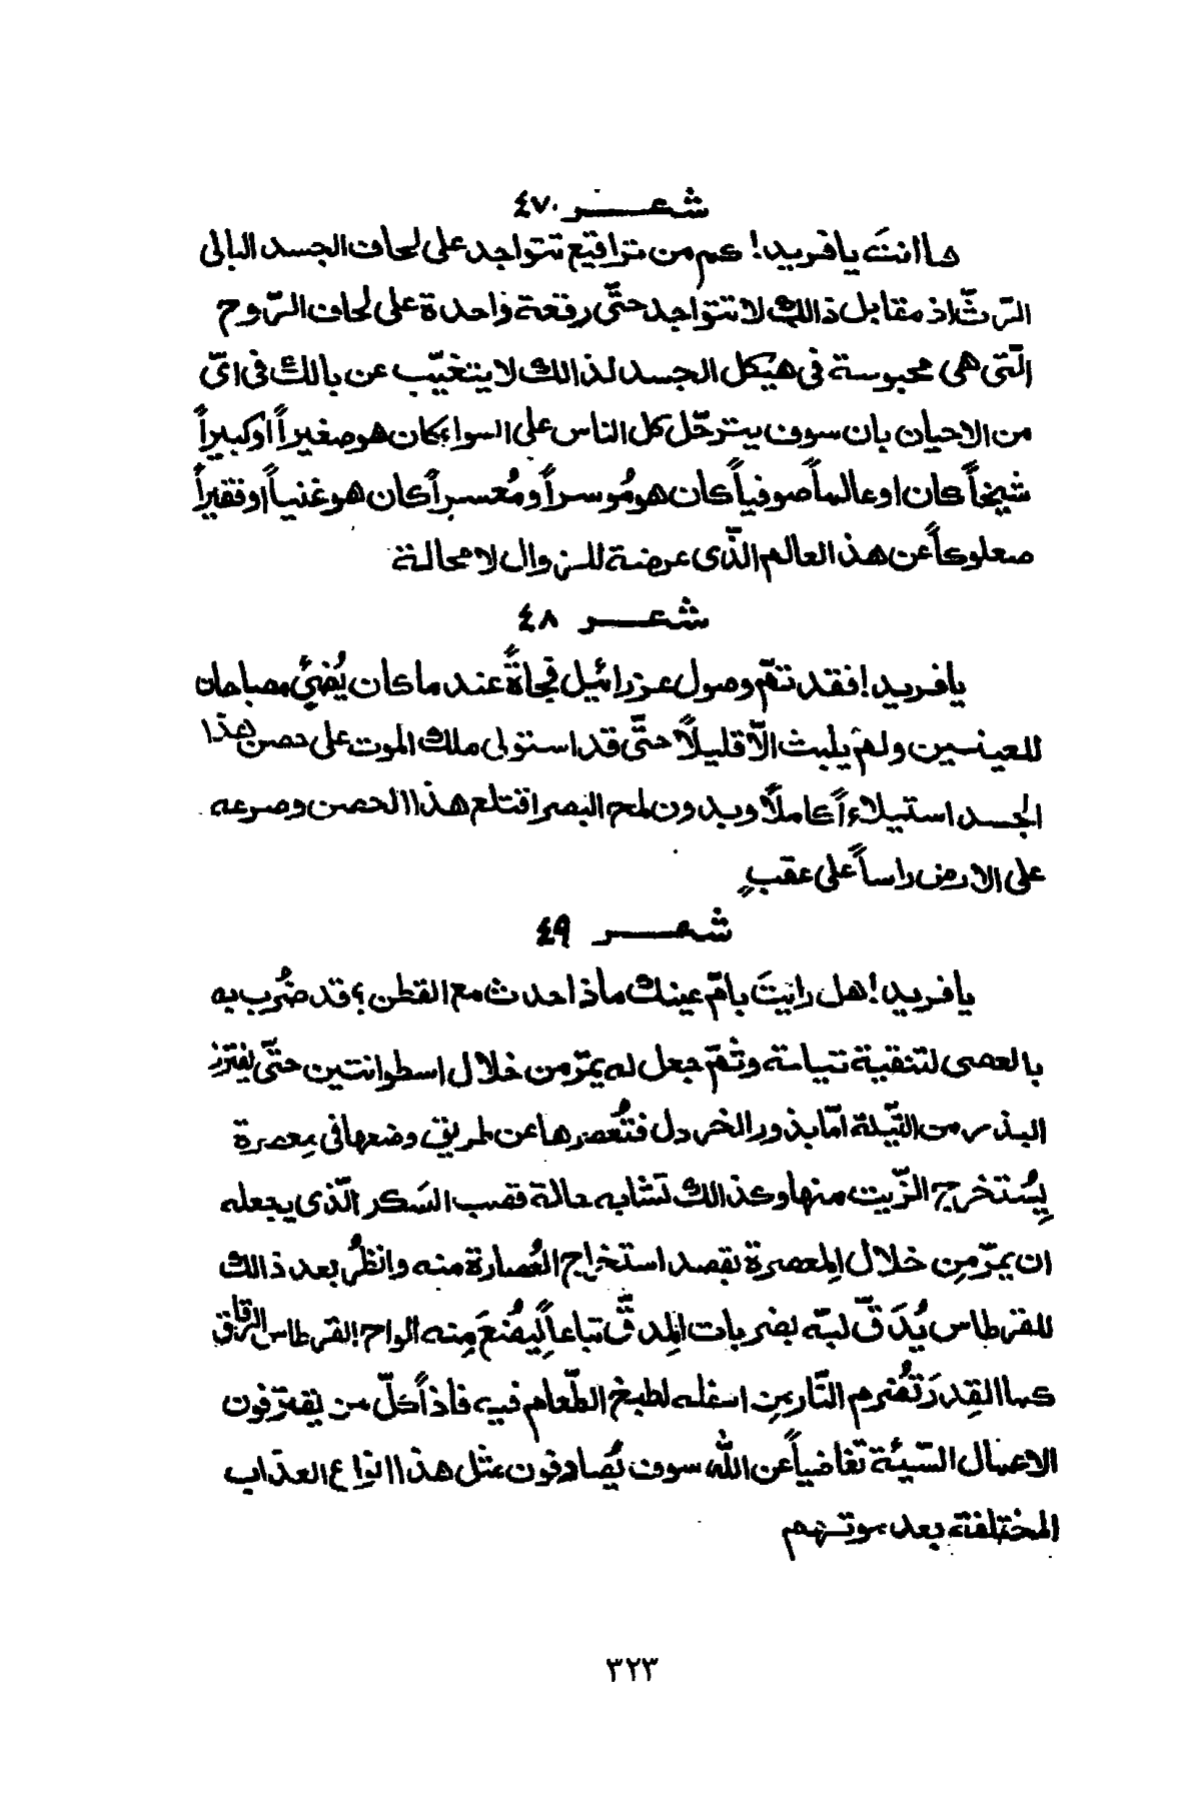 شعر ٤٧
ها انتَ يا فريد! كم من تراقيع تتواجد على لحاف الجسد البالى
الرّثّ اذ مقابل ذالك لا تتواجد حتّى رقعة واحدة على لحاف الرّوح
الّتى هى محبوسة فى هيكل الجسد لذالك لا يتغيّب عن بالك فى اىّ
من الاحيان بان سوف يترحّل كل الناس على السواء كان هو صغيراً او كبيراً
شيخاً كان او عالماً صوفياً كان هو مُوسراً و مُعسراً كان هو غنياً او فقيراً
صعلوكاً عن هذ العالم الذّى عرضة للزوال لا محالة
شعر ٤٨
يا فريد! فقد تمّ وصول عزرائيل فجاةً عند ما كان يُضئ مصباحان
للعينين ولم يلبث الاّ قليلاً حتّى قد استولى ملك الموت على حصن هذا
الجسد استيلاءاً كاملاً وبدون لمح البصر اقتلع هذا الحصن وصرعه
على الارض راساً على عقبٍ
شعر ٤٩
يا فريد! هل رايتَ بامّ عينك ماذا حدث مع القطن؟ قد ضُرب به
بالعصى لتنقية تيامته وثمّ جعل له يمرّ من خلال اسطوانتين حتّى يفترز
البذر من التّيلة امّا بذور الخردل فتُعصرها عن طريق وضعها فى مِعصرة
يِسُتخرج الزّيت منها وكذالك تشابه حالة قصب السَكر الّذى يجعله
ان يمرّ مِن خلال المِعصرة بقصد استخراج العُصارة منه وانظُر بعد ذالك
للقرطاس يُدَقّ لبّه بضربات المِدقّ تباعاً لِيُصْنعَ مِنه الواح القرطاس الرقاق
كما القِدر تَضُرم النّار مِن اسفله لطبخ الطّعام فيه فاذاً كلّ من يقترفون
الاعمال السّيئة تغاضياً عن الله سوف يُصادفون مثل هذا انواع العذاب
المختلفة بعد موتهم
٣٢٣